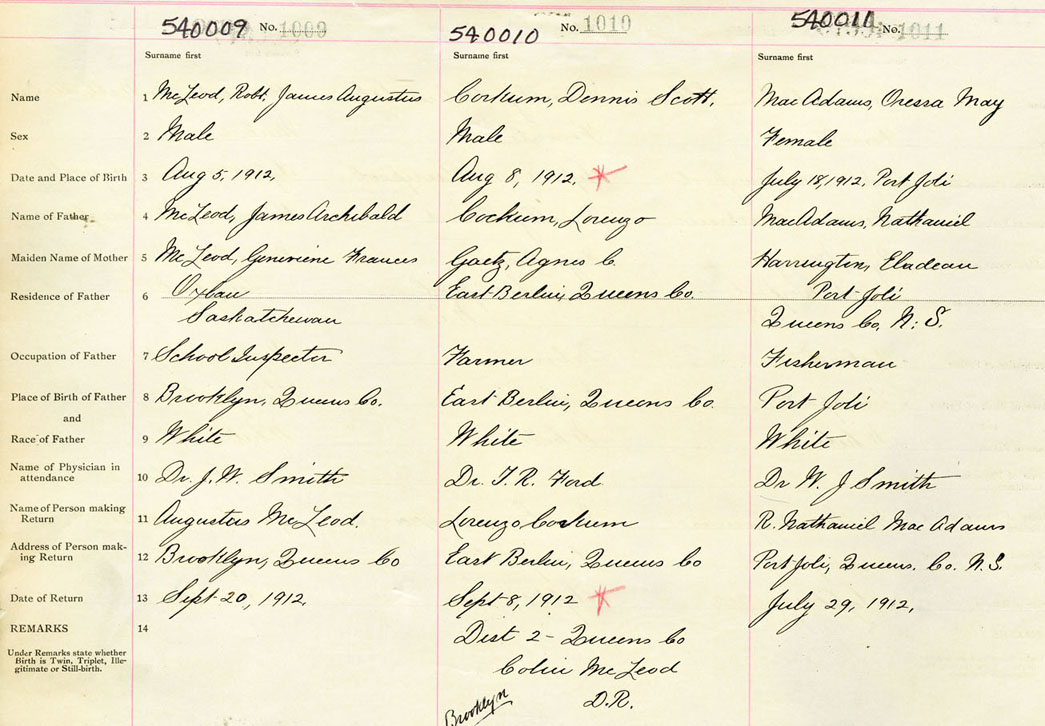 540009 No. 1009 540010 No. 1010 540011 No. 1011
Surname first Surname first Surname first
Name 1 McLeod, Robt. James Augustus Corkum, Dennis Scott. MacAdams, Oressa May
Sex 2 Male Male Female
Date and Place of Birth 3 Aug 5, 1912, Aug 8, 1912. July 18, 1912, Port Joli
Name of Father 4 McLeod, James Archibald Corkum, Lorenzo MacAdams, Nathaniel
Maiden Name of Mother 5 McLeod, Genevieve Frances Gaetz, Agnes C. Harrington, Eladeau
Residence of Father 6 Oxbau East Berlin, Queens Co. Port Joli
Saskatchewan Queens Co, N. S.
Occupation of Father 7 School Inspector Farmer Fisherman
Place of Birth of Father 8 Brooklyn, Queens Co. East Berlin, Queens Co. Port Joli
and
Race of Father 9 White White White
Name of Physician in
attendance 10 Dr. J. W. Smith Dr. T. R. Ford Dr W. J Smith
Name of Person making
Return 11 Augustus McLeod. Lorenzo Corkum R. Nathaniel Mac Adams
Address of Person mak-
ing Return 12 Brooklyn, Queens Co East Berlin, Queens Co Port Joli, Queens. Co. N.S.
Date of Return 13 Sept 20, 1912, Sept 8, 1912 July 29, 1912,
REMARKS 14 Dist 2 - Queens Co
Under Remarks state whether
Birth is Twin, Triplet, Ille-
gitimate or Still-birth.
Colin McLeod
D.R.
Brooklyn